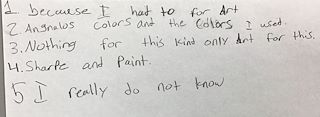 1. because I had to for Art
2. Angnalos colors and the colors I used.
3. Nothing for this kind only Art for this.
4. Sharpe and Paint.
5 I really do not know